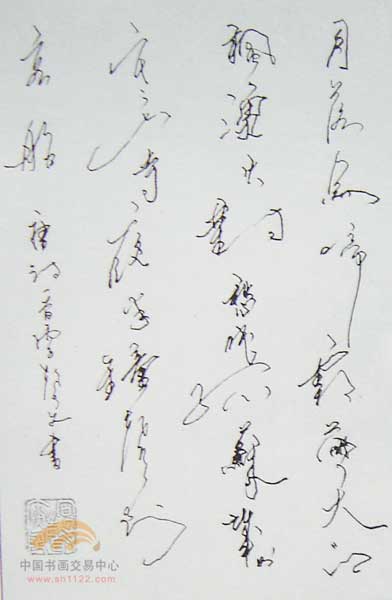 月落烏啼霜滿天江
楓漁火對愁眠姑蘇城外
寒山寺夜半鐘聲到
客船 唐詩一首 書
中国书画交易中心
www.sh1122.com